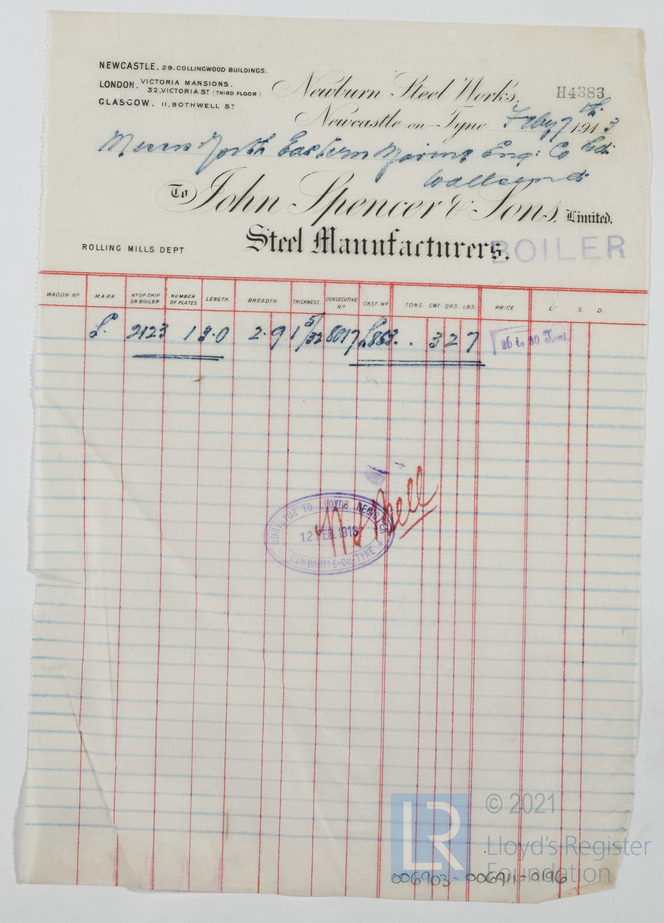 NEWCASTLE. 29. COLLINGWOOD BUILDINGS.
LONDON. VICTORIA MANSIONS.
32, VICTORIA ST (THIRD FLOOR)
GLASGOW. 11, BOTHWELL ST
Newburn Steel Works,
H4383
Newcastle-on-Tyne Feby 7th 1913
Messrs North Eastern Marine Eng: Co Ltd:
Wallsend
To John Spencer & Sons, Limited.
Steel Manufacturers.
BOILER
ROLLING MILLS DEPT
WAGON No MARK No OF SHIP OR BOILER NUMBER OF PLATES LENGTH BREADTH THICKNESS CONSECUTIVE No CAST No TONS. CWT. QRS. LBS. PRICE £ S. D.
2123 1 9.0 2.9 1 5/32 8017 3 2 7 26 to 30 Tons
12 FEB. 1913
LLOYDS REGISTER
NEWCASTLE-ON-TYNE
LR
© 2021
Lloyd's Register
Foundation
006903-006911-0196